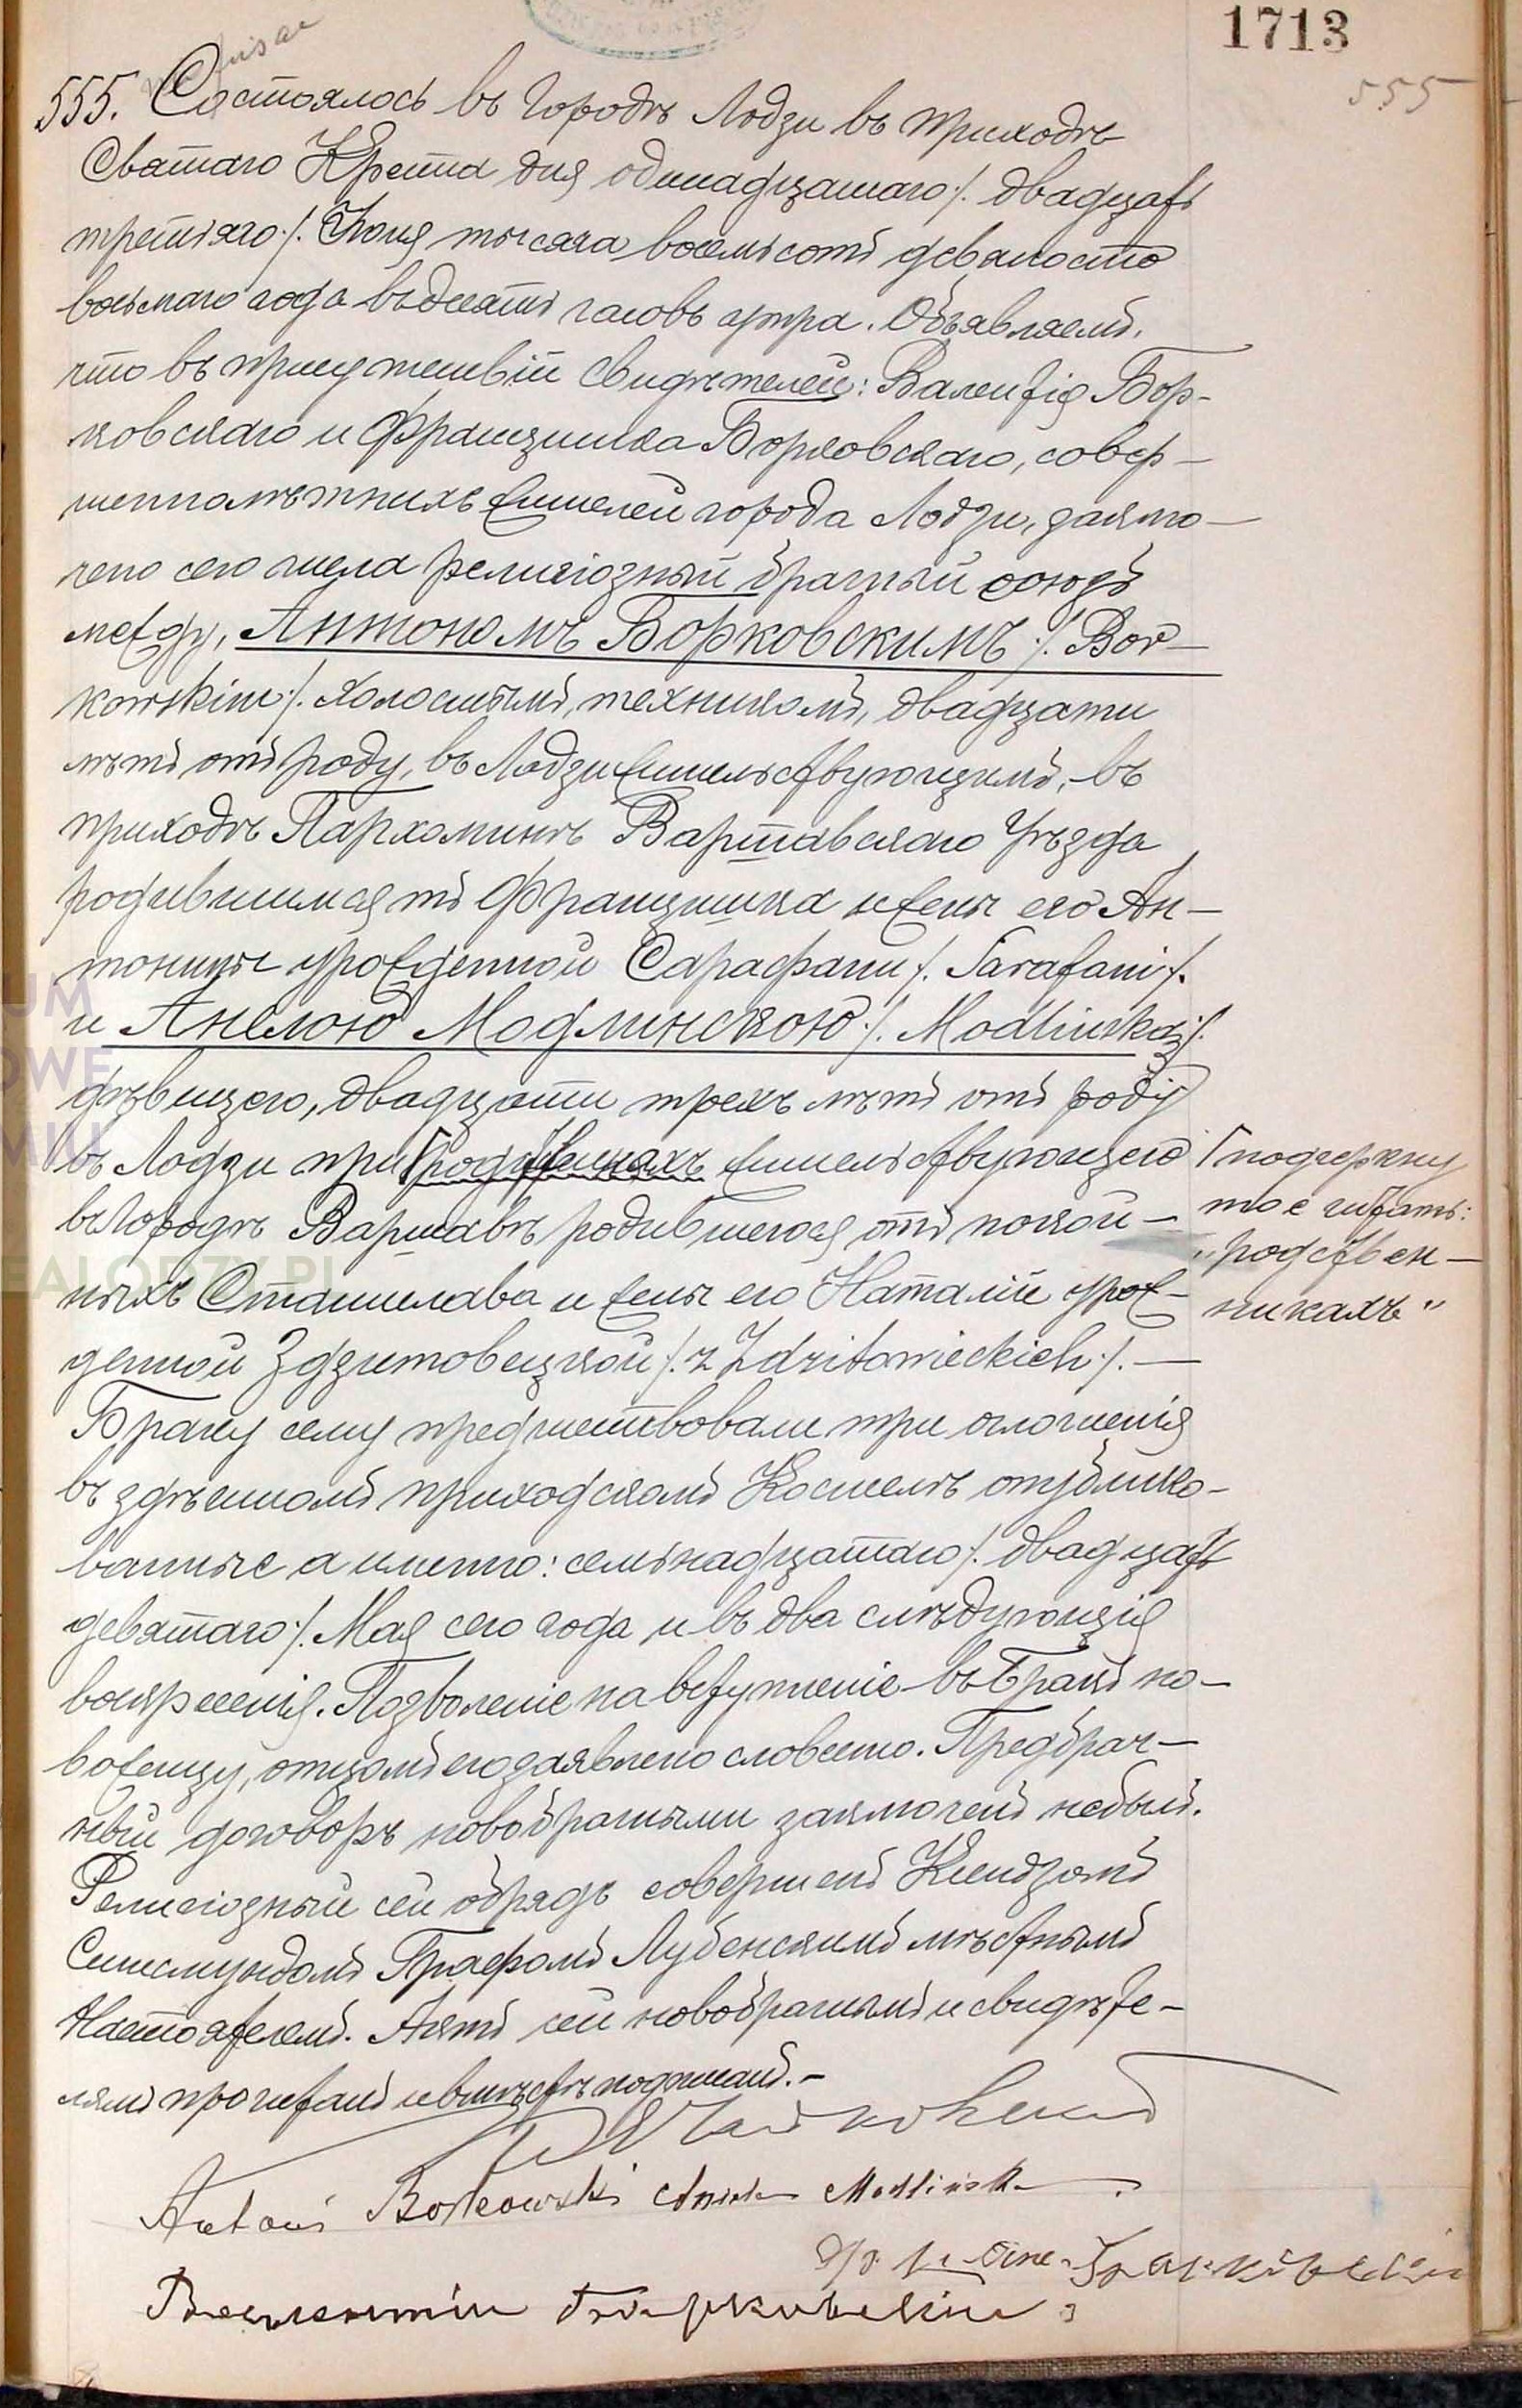 1713
555
555. Состоялось въ Городѣ Лодзи въ приходѣ
Святаго Креста дня одинадцатаго /. двадцать
третіяго /. Іюня тысяча восемьсотъ девяносто
восьмаго года въ десять часовъ утра. Объявляемъ,
что въ присутствіи свидѣтелей: Валентія Бор-
ковскаго и Францишка Борковскаго, совер-
шеннолѣтнихъ жителей города Лодзи, заклю-
чено сего числа религіозный брачный союзъ
между, Антономъ Борковскимъ /. Bor-
kowskim /. холостымъ, техникомъ, двадцати
лѣтъ отъ роду, въ Лодзи жительствующимъ, въ
приходѣ Пархоминѣ Варшавскаго Уѣзда
родившимся отъ Францишка и жены его Ан-
тонины урожденной Сарафани /. Sarafani /.
и Анелою Модлинскою /. Modlińską /.
дѣвицею, двадцати трехъ лѣтъ отъ роду
въ Лодзи при жительствующею
въ Городѣ Варшавѣ родившеюся отъ покой-
ныхъ Станислава и жены его Наталіи урож-
денной Здзитовецкой /. z Zdzitowieckich /. —
Браку сему предшествовали три оглашенія
въ здѣшномъ приходскомъ Костелѣ опублико-
ванные а именно: семьнадцатаго /. двадцать
девятаго /. Мая сего года и въ два слѣдующія
воскресенія. Позволеніе на вступленіе въ бракъ но-
воженцу, отцомъ его заявлено словесно. Предбрач-
ный договоръ новобрачными заключенъ небылъ.
Религіозный сей обрядъ совершенъ Ксендзомъ
Сигисмундомъ Графомъ Лубенскимъ мѣстнымъ
Настоятелемъ. Актъ сей новобрачнымъ и свидѣте-
лямъ прочитанъ и вмѣстѣ подписанъ. —
подчеркну
тое читать:
„родствен-
никахъ"
Antoni Borkowski Aniela Modlińska
Валентій Борковскій